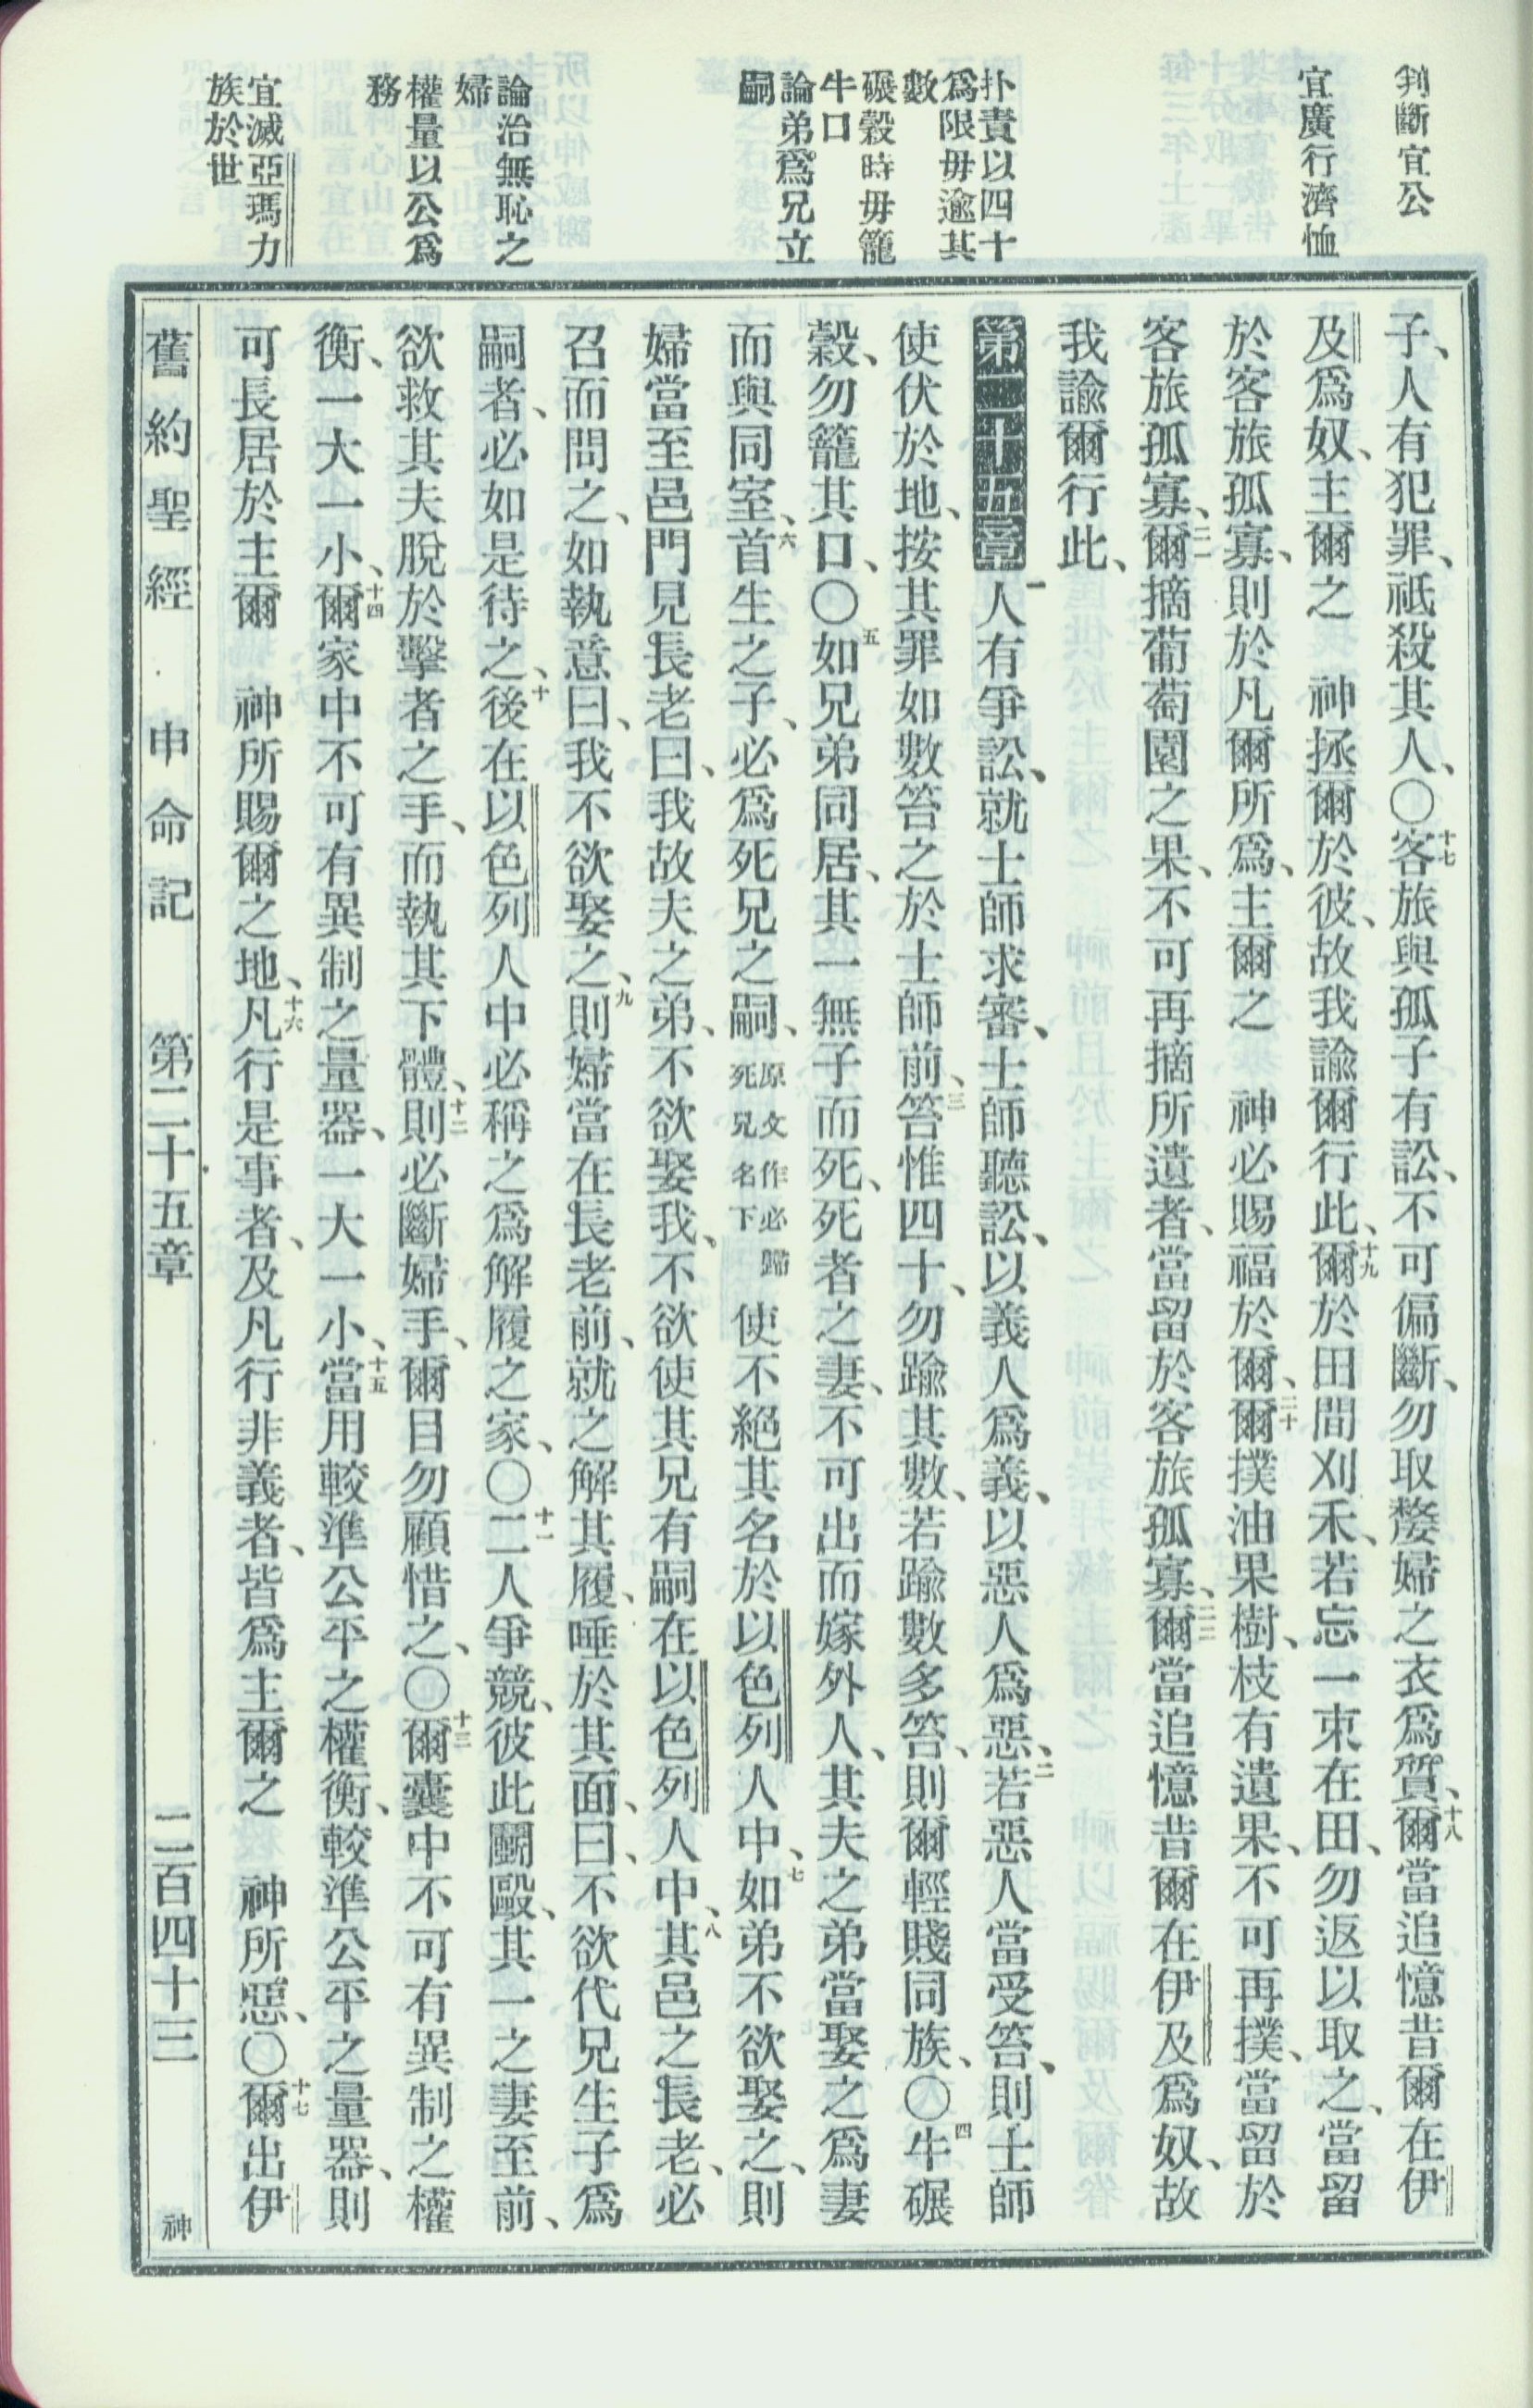 判斷宜公
宜廣行濟恤
扑責以四十
爲限毋逾其
數
碾穀時毋籠
牛口
論弟爲兄立
嗣
論治無恥之
婦
權量以公爲
務
宜滅亞瑪力
族於世
子、人有犯罪、祗殺其人、〇十七客旅與孤子有訟、不可偏斷、勿取嫠婦之衣爲質、十八爾當追憶昔爾在伊
及爲奴、主爾之　神拯爾於彼、故我諭爾行此、十九爾於田間刈禾、若忘一束在田、勿返以取之、當留
於客旅孤寡、則於凡爾所爲、主爾之　神必賜福於爾、二十爾撲油果樹、枝有遺果、不可再撲、當留於
客旅孤寡、二一爾摘葡萄園之果、不可再摘所遺者、當留於客旅孤寡、二二爾當追憶昔爾在伊及爲奴、故
我諭爾行此、
第二十五章 一人有爭訟、就士師求審、士師聽訟、以義人爲義、以惡人爲惡、二若惡人當受笞、則士師
使伏於地、按其罪如數笞之於士師前、三笞惟四十、勿踰其數、若踰數多笞、則爾輕賤同族、〇四牛碾
穀、勿籠其口、〇五如兄弟同居、其一無子而死、死者之妻、不可出而嫁外人、其夫之弟當娶之爲妻
而與同室、六首生之子、必爲死兄之嗣、原文作必歸死兄名下　使不絕其名於以色列人中、七如弟不欲娶之、則
婦當至邑門見長老曰、我故夫之弟、不欲娶我、不欲使其兄有嗣在以色列人中、八其邑之長老、必
召而問之、如執意曰、我不欲娶之、九則婦當在長老前、就之解其履、唾於其面、曰、不欲代兄生子爲
嗣者、必如是待之、十後在以色列人中必稱之爲解履之家、〇十一二人爭競、彼此鬭毆、其一之妻至前、
欲救其夫脫於擊者之手、而執其下體、十二則必斷婦手、爾目勿顧惜之、〇十三爾囊中不可有異制之權
衡、一大一小、十四爾家中不可有異制之量器、一大一小、十五當用較準公平之權衡、較準公平之量器、則
可長居於主爾　神所賜爾之地、十六凡行是事者、及凡行非義者、皆爲主爾之　神所惡、〇十七爾出伊
舊約聖經　申命記　第二十五章　二百四十三　神